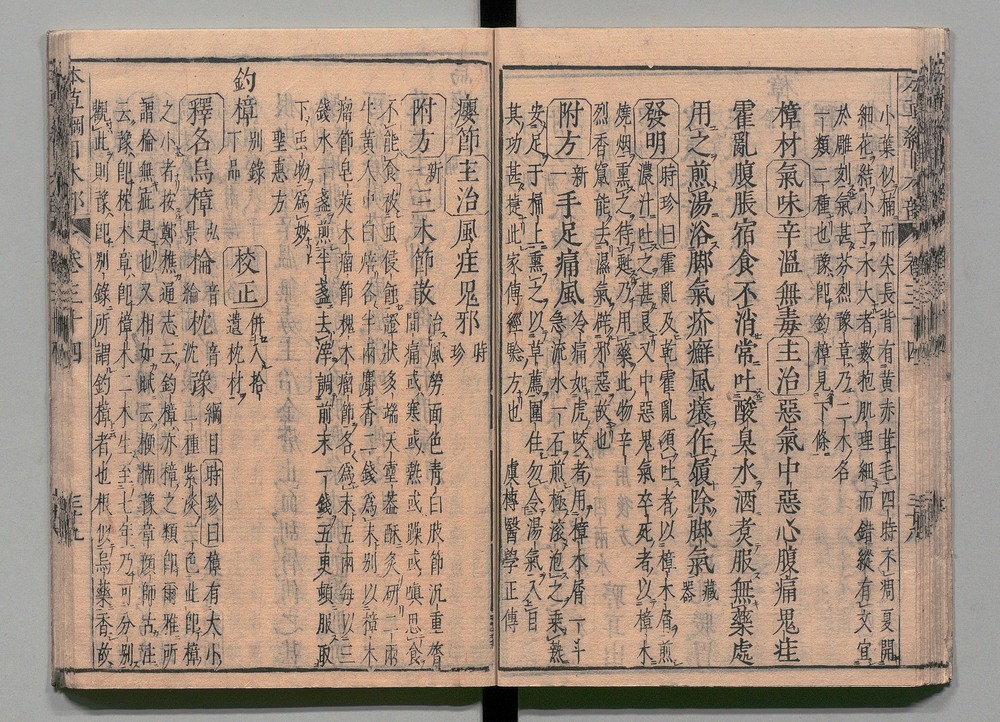 小葉似楠而尖長背有黃赤茸毛四時不凋夏開
細花結小子木大者數抱肌理細而錯縱有文宜
於雕刻氣甚芬烈豫章乃二木名
一類二種也豫即釣樟見下條
樟材氣味辛溫無毒主治惡氣中惡心腹痛鬼疰
霍亂腹脹宿食不消常吐酸臭水酒煮服無藥處
用之煎湯浴脚氣疥癬風癢作履除脚氣藏器
發明時珍曰霍亂及乾霍亂須吐者以樟木屑煎
濃汁吐之甚良又中惡鬼氣卒死者以樟木
燒烟熏之待甦乃用藥此物辛
烈香竄能去濕氣辟邪惡故也
附方新一手足痛風冷痛如虎咬者用樟木屑一斗
急流水一石煎極滾泡之乘熱
安足于桶上熏之以草薦圍住勿令湯氣入目
其功甚捷此家傳經驗方也 虞摶醫學正傳
癭節主治風疰鬼邪時珍
附方新一三木節散治風勞面色青白肢節沉重膂
間痛或寒或熱或躁或嗔思食
不能食被虫侵蝕證狀多端天靈蓋酥炙研二兩
牛黃人中白焙各半兩麝香二錢爲末別以樟木
瘤節皂莢木瘤節槐木瘤節各爲末五兩每以三
錢水一盞煎半盞去滓調前末一錢五更頓服取
下虫物爲妙
聖惠方
釣樟別錄下品 校正併入拾遺枕材
釋名烏樟弘景棆音倫枕音沈豫綱目時珍曰樟有大小
二種紫淡二色此即樟
之小者按鄭樵通志云釣樟亦樟之類即爾雅所
謂棆無疵是也又相如賦云楩楠豫章顏師古注
云豫即枕木章即樟木二木生至七年乃可分別
觀此則豫即別錄所謂釣樟者也根似烏藥香故
本草綱目木部 卷三十四